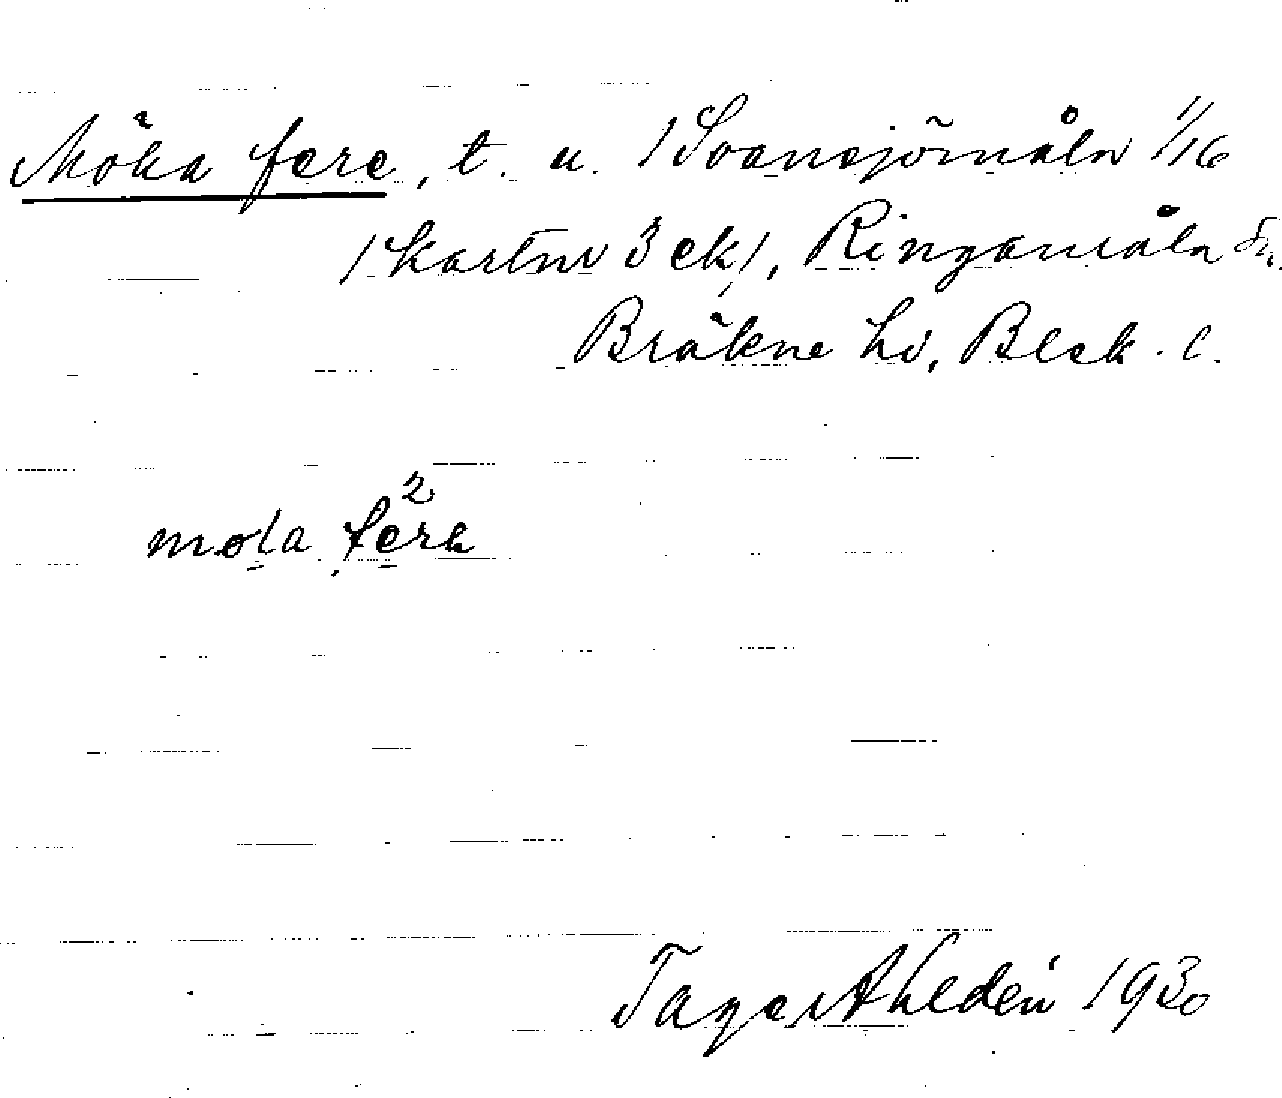 Möka fere, t. u. /Svansjömåla 1/16
/kartnr 3 ek/, Ringamåla Sn.
Bräkne hd, Blek. l.
2
Tage Ahldén 1930